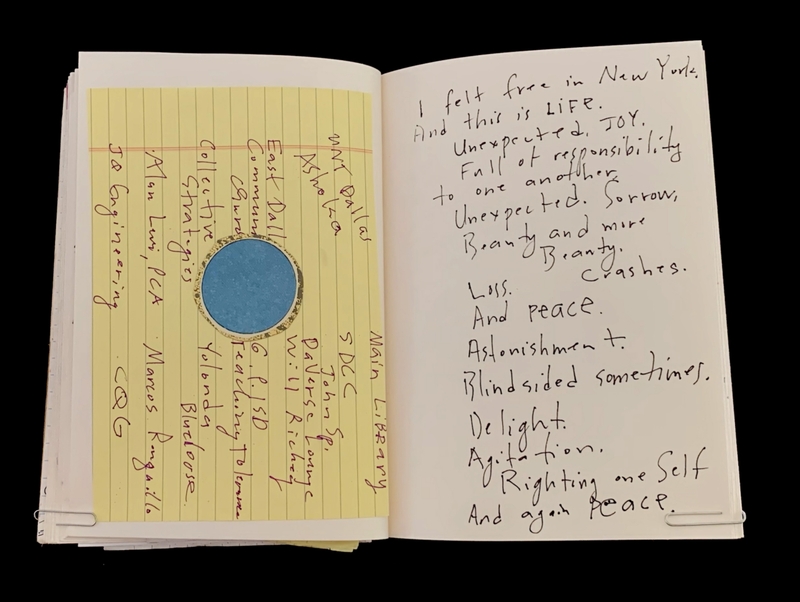 Main Library
UNT Dallas SDCC
Ashoka John Sp.
DaVerse Lounge
East Dall Will Richey
Commun G.P. ISD
Teaching Tolerance
Collective Yolonda
Strategies
Alan PCA Marcos
JQ Engineering CQG
I felt free in New York.
And this is LIFE.
Unexpected. JOY.
Fall of responsibility
to one another.
Unexpected. Sorrow,
Beauty and more
Beauty.
Loss. Crashes.
And peace.
Astonishment.
Blindsided sometimes.
Delight.
Agitation.
Righting one Self
And again Peace.